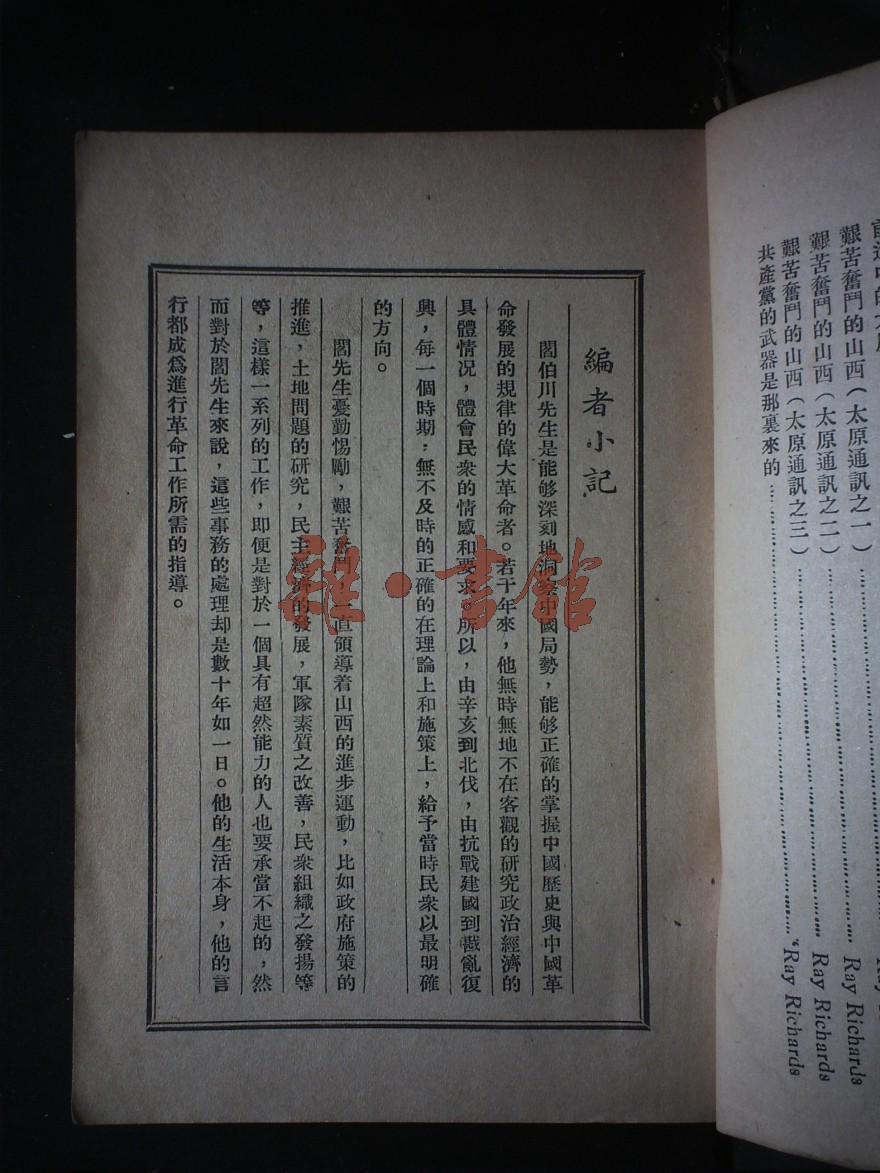 艱苦奮鬥的山西（太原通訊之一）
艱苦奮鬥的山西（太原通訊之二）……Ray Richards
艱苦奮鬥的山西（太原通訊之三）……Ray Richards
共產黨的武器是那裏來的……"Ray Richards
編者小記
閻伯川先生是能够深刻地洞察中國局勢，能够正確的掌握中國歷史與中國革
命發展的規律的偉大革命者。若干年來，他無時無地不在客觀的研究政治經濟的
具體情况，體會民衆的情感和要求。所以，由辛亥到北伐，由抗戰建國到戡亂復
興，每一個時期；無不及時的正確的在理論上和施策上，給予當時民衆以最明確
的方向。
閻先生憂勤惕勵，艱苦奮鬥，一直領導着山西的進步運動，比如政府施策的
推進，土地問題的研究，民主經濟的發展，軍隊素質之改善，民衆組織之發揚等
等，這樣一系列的工作，即便是對於一個具有超然能力的人也要承當不起的，然
而對於閻先生來說，這些事務的處理却是數十年如一日。他的生活本身，他的言
行都成爲進行革命工作所需的指導。
雜·書館